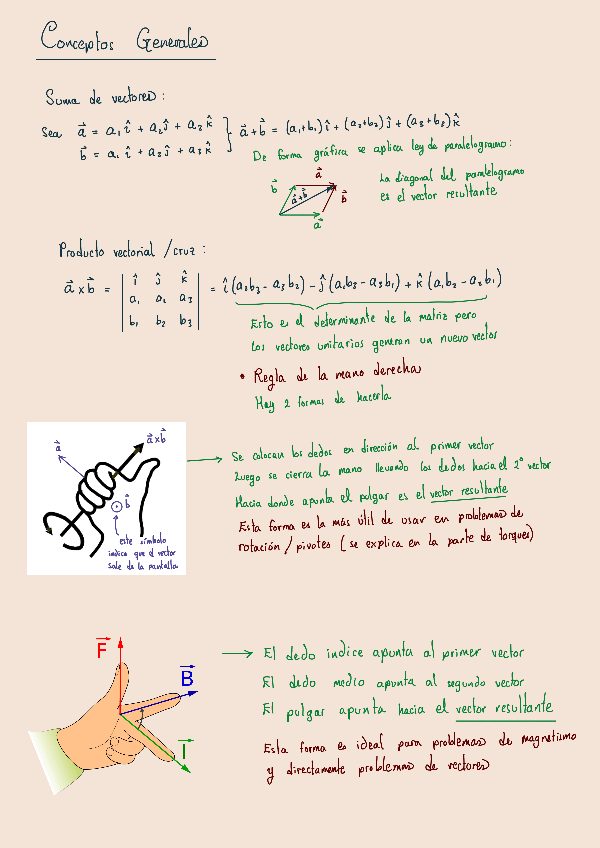 Conceptos Generales
Suma de vectores:
Sea a⃗ = a₁ î + a₂ ĵ + a₃ k̂ } a⃗+b⃗ = (a₁+b₁) î + (a₂+b₂) ĵ + (a₃+b₃) k̂
b⃗ = a₁ î + a₂ ĵ + a₃ k̂
De forma gráfica se aplica ley de paralelogramo:
a⃗
b⃗
a⃗+b⃗
b⃗
a⃗
La diagonal del paralelogramo
es el vector resultante
Producto vectorial / cruz:
a⃗ x b⃗ = | î ĵ k̂ | = î (a₂b₃ - a₃b₂) - ĵ (a₁b₃ - a₃b₁) + k̂ (a₁b₂ - a₂b₁)
a₁ a₂ a₃
b₁ b₂ b₃
Esto es el determinante de la matriz pero
los vectores unitarios generan un nuevo vector
• Regla de la mano derecha
Hay 2 formas de hacerla
a⃗
a⃗xb⃗
b⃗
este símbolo
indica que el vector
sale de la pantalla
Se colocan los dedos en dirección al primer vector
Luego se cierra la mano llevando los dedos hacia el 2° vector
Hacia donde apunta el pulgar es el vector resultante
Esta forma es la más útil de usar en problemas de
rotación / pivotes (se explica en la parte de torques)
F⃗
B⃗
I⃗
El dedo indice apunta al primer vector
El dedo medio apunta al segundo vector
El pulgar apunta hacia el vector resultante
Esta forma es ideal para problemas de magnetismo
y directamente problemas de vectores